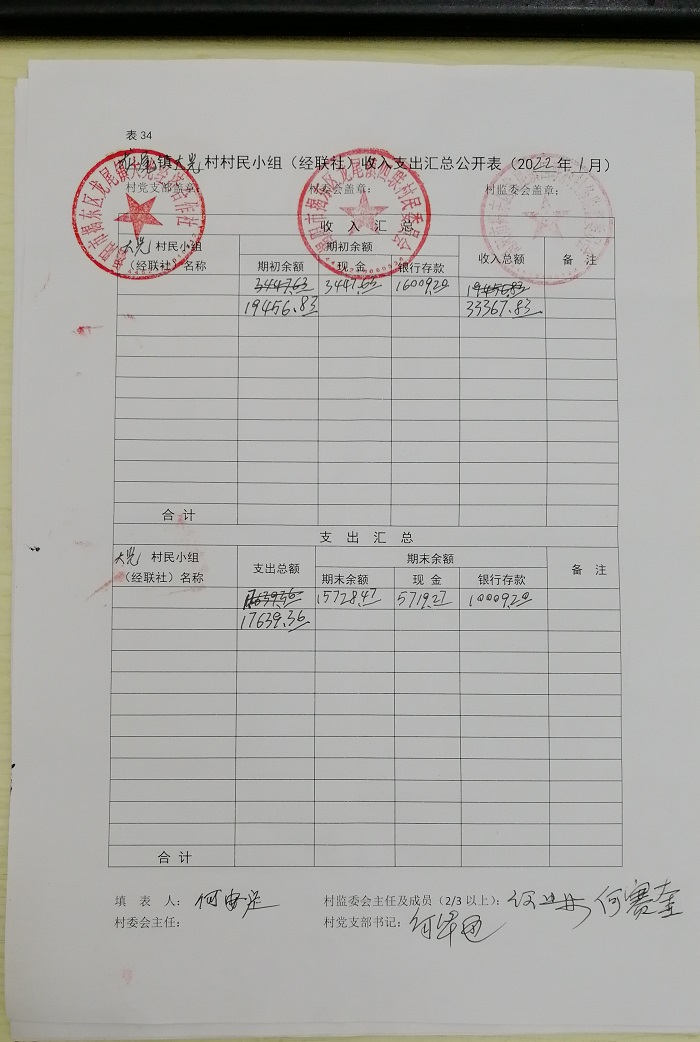 表 34
龙尾镇大光村村民小组（经联社）收入支出汇总公开表（2022年1月）
村党支部盖章： 村委会盖章： 村监委会盖章：
收 入 汇 总
大光 村民小组 期初余额 收入总额 备 注
（经联社）名称 期初余额 现 金 银行存款
3447.63 3447.63 16009.20 19456.83
19456.83 33367.83
合 计
支 出 汇 总
大光 村民小组 支出总额 期末余额 备 注
（经联社）名称 期末余额 现 金 银行存款
17639.36 15728.47 5719.27 10009.20
17639.36
合 计
填 表 人： 村监委会主任及成员（2/3 以上）： 何赛奎
村委会主任： 村党支部书记：